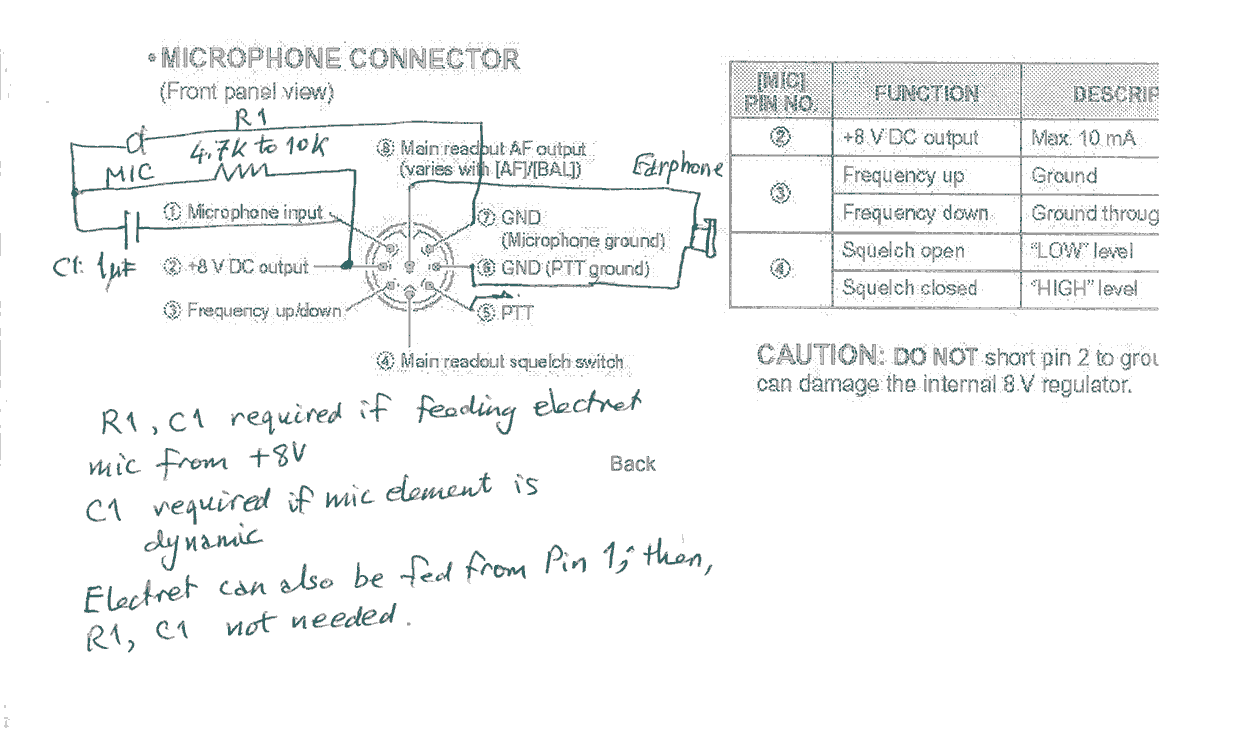 • MICROPHONE CONNECTOR
(Front panel view)
R1
4.7K to 10K
MIC
⑧ Main readout AF output
(varies with [AF]/[BAL])
Earphone
① Microphone input
⑦ GND
(Microphone ground)
C1: 1µF
② +8 V DC output
⑥ GND (PTT ground)
③ Frequency up/down
⑤ PTT
④ Main readout squelch switch
[MIC]
PIN NO.
FUNCTION
DESCRIP
② +8 V DC output Max. 10 mA
③ Frequency up Ground
Frequency down Ground throug
④ Squelch open "LOW" level
Squelch closed "HIGH" level
CAUTION: DO NOT short pin 2 to grou
can damage the internal 8 V regulator.
R1, C1 required if feeding electret
mic from +8V
C1 required if mic element is
dynamic
Electret can also be fed from Pin 1; then,
R1, C1 not needed.
Back